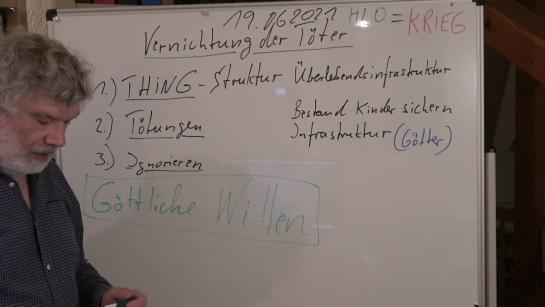 19.06.2021 HLO = KRIEG
Vernichtung der Töter
1.) THiNG-Struktur Überlebendsinfrastruktur
Bestand Kinder sichern
2.) Tötungen Infrastruktur (Götter)
3.) Ignorieren
Göttliche Willen